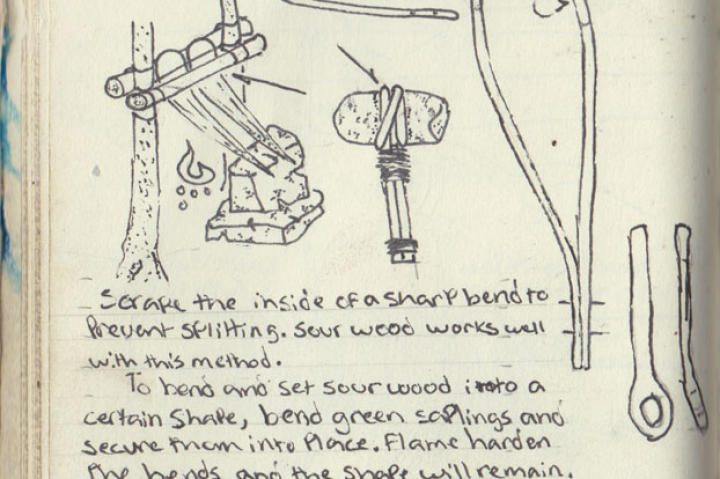 Scrape the inside of a sharp bend to
Prevent splitting. Sour wood works well
with this method.
To bend and set sour wood into a
certain shape, bend green saplings and
secure them into Place. Flame harden
the bends and the shape will remain.